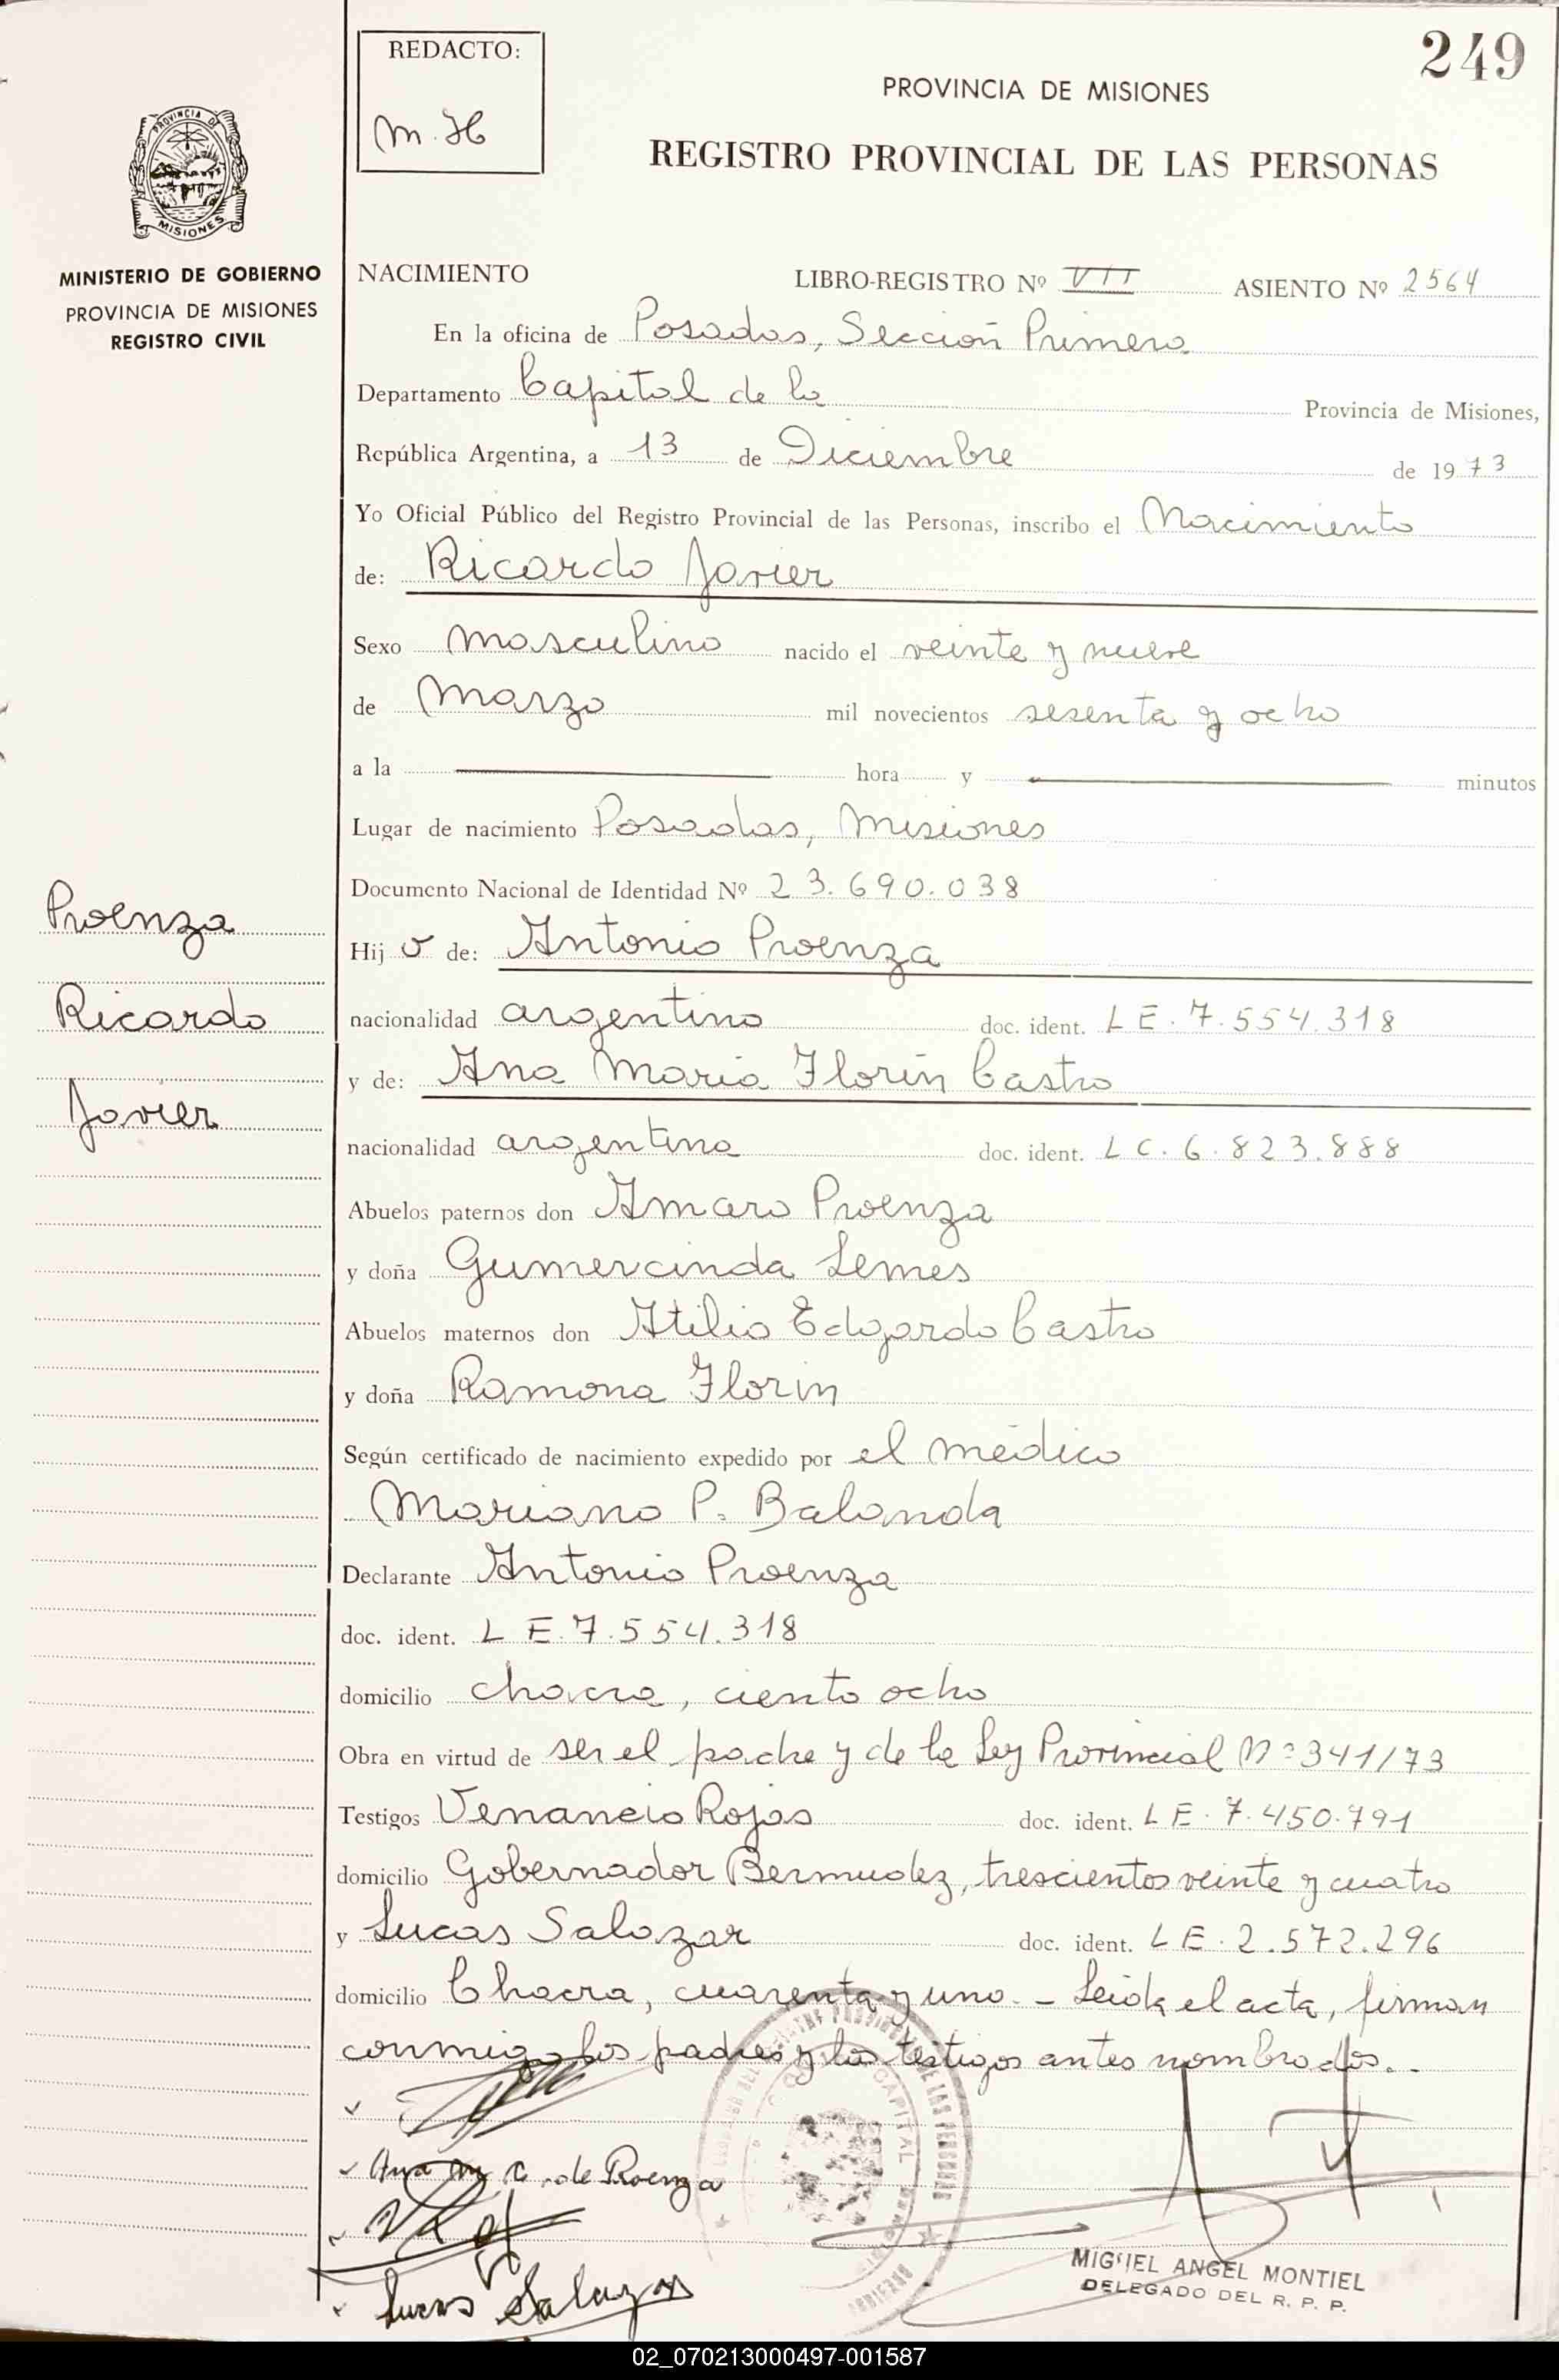 249
REDACTO:
M. H
PROVINCIA DE MISIONES
REGISTRO PROVINCIAL DE LAS PERSONAS
PROVINCIA DE
MISIONES
MINISTERIO DE GOBIERNO
PROVINCIA DE MISIONES
REGISTRO CIVIL
NACIMIENTO LIBRO-REGISTRO Nº VII ASIENTO Nº 2564
En la oficina de Posadas, Sección Primera
Departamento Capital de la Provincia de Misiones,
República Argentina, a 13 de Diciembre de 1973
Yo Oficial Público del Registro Provincial de las Personas, inscribo el Nacimiento
de: Ricardo Javier
Sexo masculino nacido el veinte y nueve
de Marzo mil novecientos sesenta y ocho
a la hora y minutos
Lugar de nacimiento Posadas, Misiones
Documento Nacional de Identidad Nº 23.690.038
Proenza
Ricardo
Javier
Hijo de: Antonio Proenza
nacionalidad argentino doc. ident. LE. 7.554.318
y de: Ana Maria Florin Castro
nacionalidad argentina doc. ident. LC. 6.823.888
Abuelos paternos don Amaro Proenza
y doña Gumercinda Lemes
Abuelos maternos don Atilio Edgardo Castro
y doña Ramona Florin
Según certificado de nacimiento expedido por el médico
Mariano P. Balanda
Declarante Antonio Proenza
doc. ident. LE. 7.554.318
domicilio chacra, ciento ocho
Obra en virtud de ser el padre y de la Ley Provincial Nº 341/73
Testigos Venancio Rojas doc. ident. LE. 7.450.791
domicilio Gobernador Bermudez, trescientos veinte y cuatro
y Lucas Salazar doc. ident. LE. 2.572.296
domicilio Chacra, cuarenta y uno. - Leida el acta, firman
conmigo los padres y los testigos antes nombrados. -
Ana M. C. de Proenza
Lucas Salazar
CAPITAL
DE LAS PERSONAS
MIGUEL ANGEL MONTIEL
DELEGADO DEL R. P. P.
02_070213000497-001587